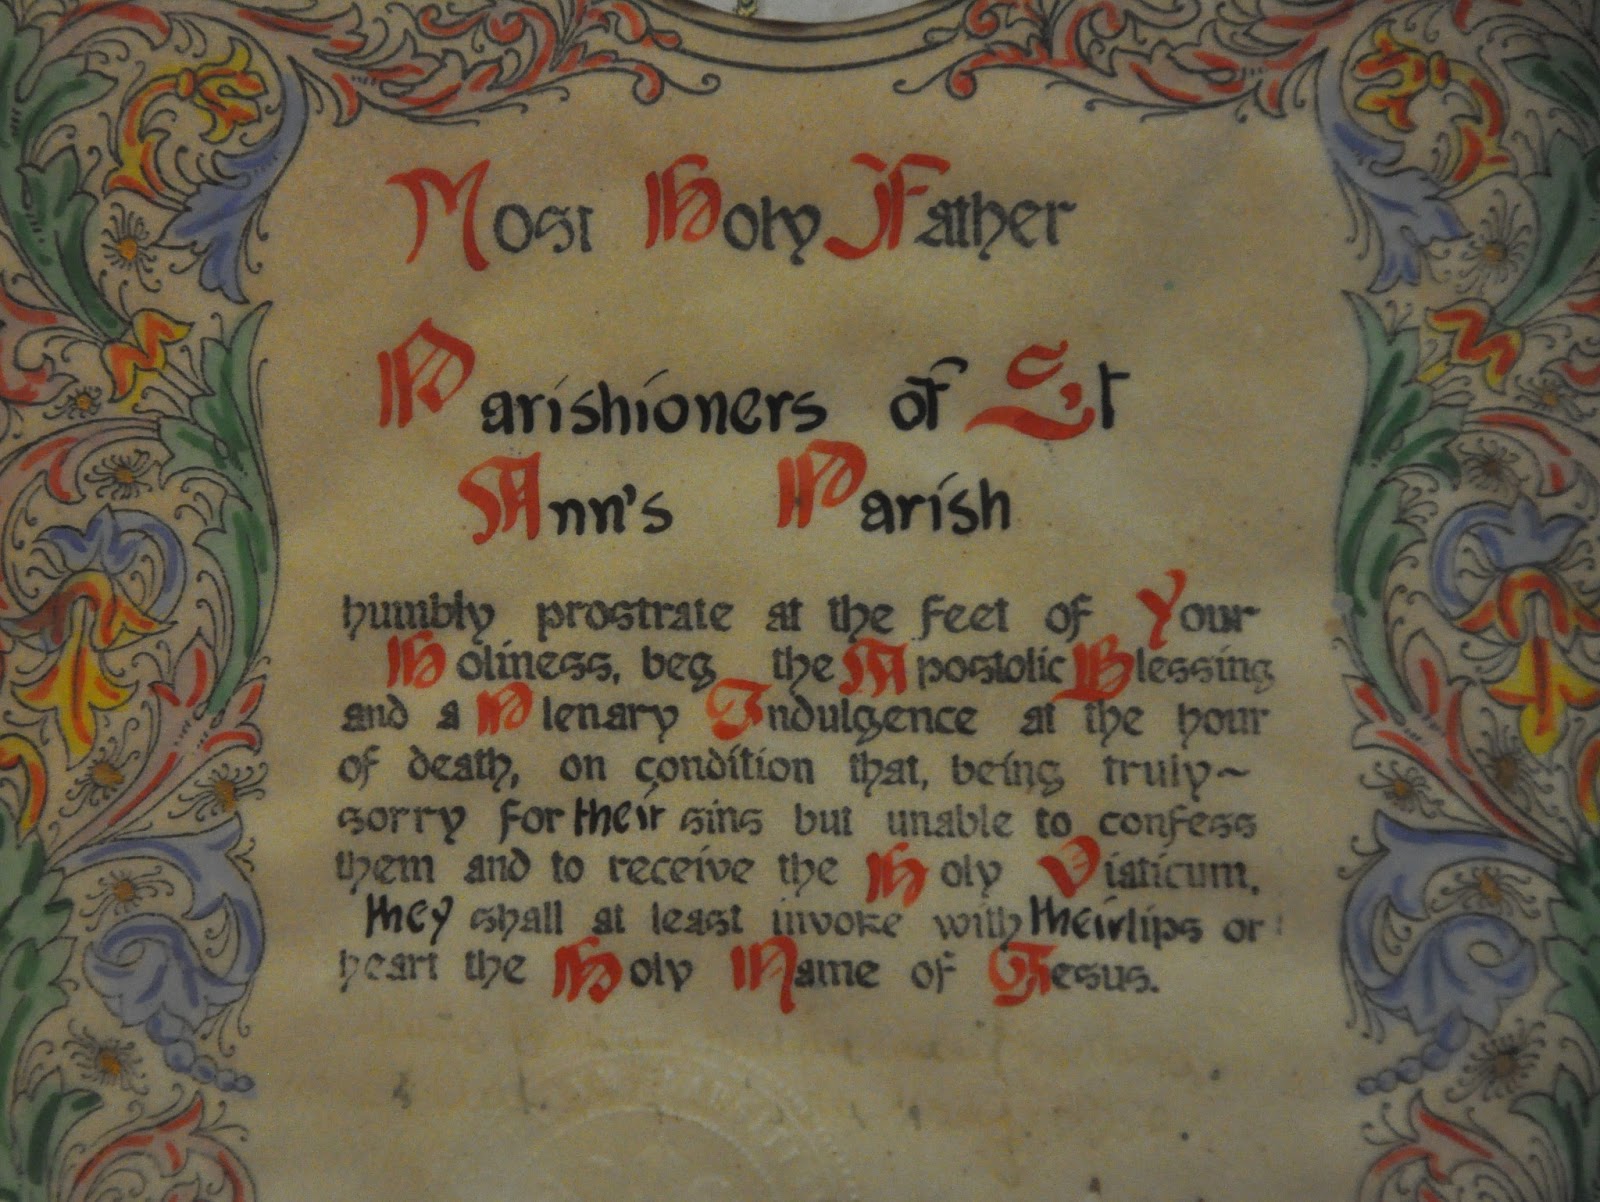 Most Holy Father
Parishioners of St
Ann's Parish
humbly prostrate at the feet of Your
Holiness, beg the Apostolic Blessing
and a Plenary Indulgence at the hour
of death, on condition that, being truly~
sorry for their sins but unable to confess
them and to receive the Holy Viaticum,
they shall at least invoke with their lips or
heart the Holy Name of Jesus.